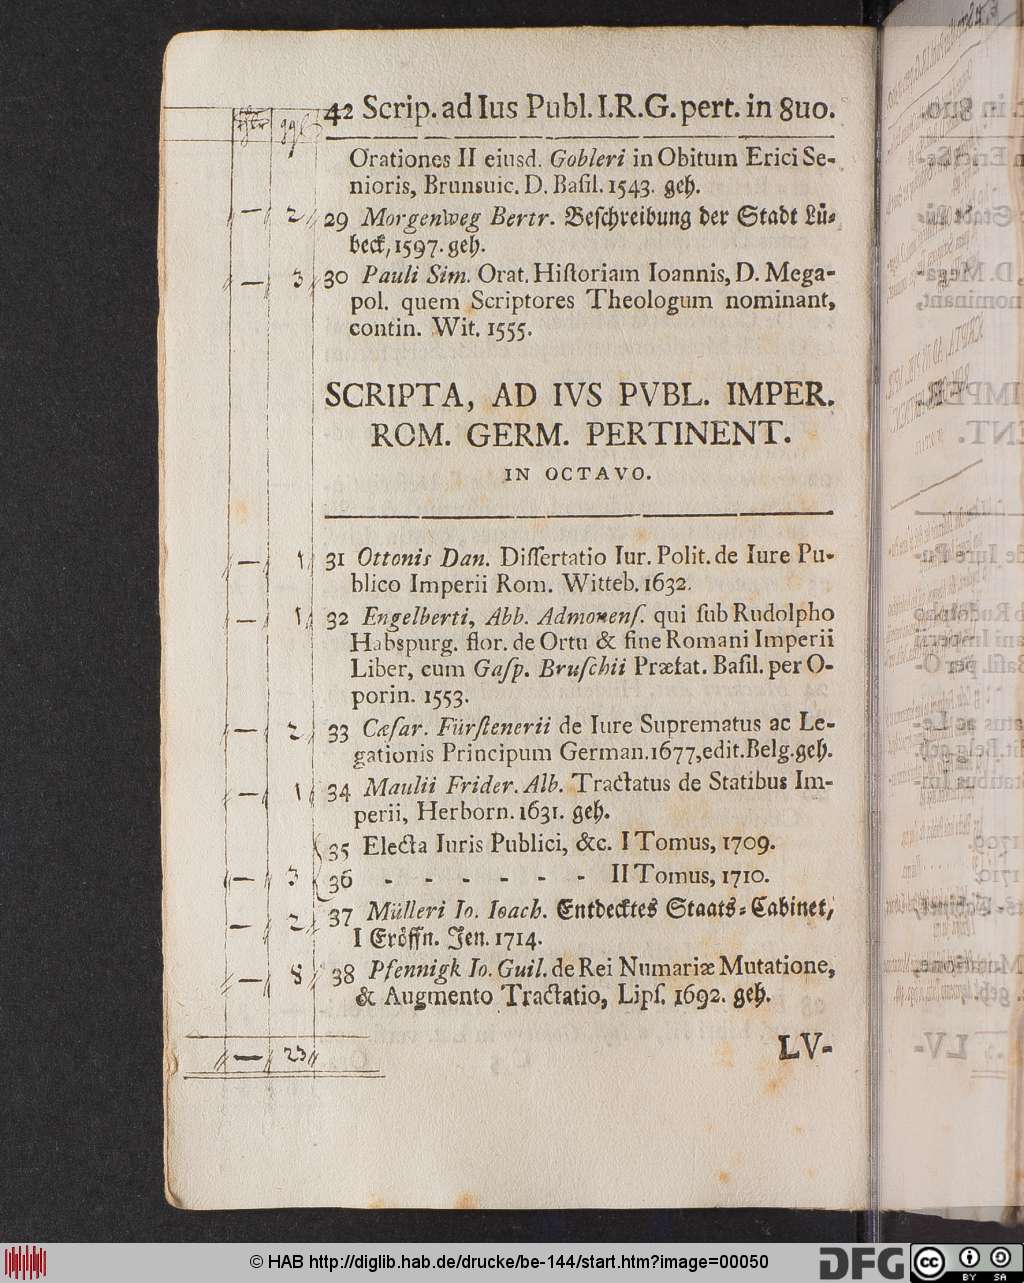 42 Scrip. ad Ius Publ. I.R.G. pert. in 8uo.
Orationes II eiusd. Gobleri in Obitum Erici Se-
nioris, Brunsuic. D. Basil. 1543. geh.
— 2
29 Morgenweg Bertr. Beschreibung der Stadt Lü-
beck, 1597. geh.
— 3
30 Pauli Sim. Orat. Historiam Ioannis, D. Mega-
pol. quem Scriptores Theologum nominant,
contin. Wit. 1555.
SCRIPTA, AD IVS PVBL. IMPER.
ROM. GERM. PERTINENT.
IN OCTAVO.
— 1
31 Ottonis Dan. Dissertatio Iur. Polit. de Iure Pu-
blico Imperii Rom. Witteb. 1632.
— 1
32 Engelberti, Abb. Admonens. qui sub Rudolpho
Habspurg. flor. de Ortu & fine Romani Imperii
Liber, cum Gasp. Bruschii Præfat. Basil. per O-
porin. 1553.
— 2
33 Cæsar. Fürstenerii de Iure Suprematus ac Le-
gationis Principum German. 1677, edit. Belg. geh.
— 1
34 Maulii Frider. Alb. Tractatus de Statibus Im-
perii, Herborn. 1631. geh.
35 Electa Iuris Publici, &c. I Tomus, 1709.
— 3
36 - - - - - - II Tomus, 1710.
— 2
37 Mülleri Io. Ioach. Entdecktes Staats-Cabinet,
I Eröffn. Jen. 1714.
— 8
38 Pfennigk Io. Guil. de Rei Numariæ Mutatione,
& Augmento Tractatio, Lips. 1692. geh.
— 23
LV-
© HAB http://diglib.hab.de/drucke/be-144/start.htm?image=00050
DFG
cc BY SA